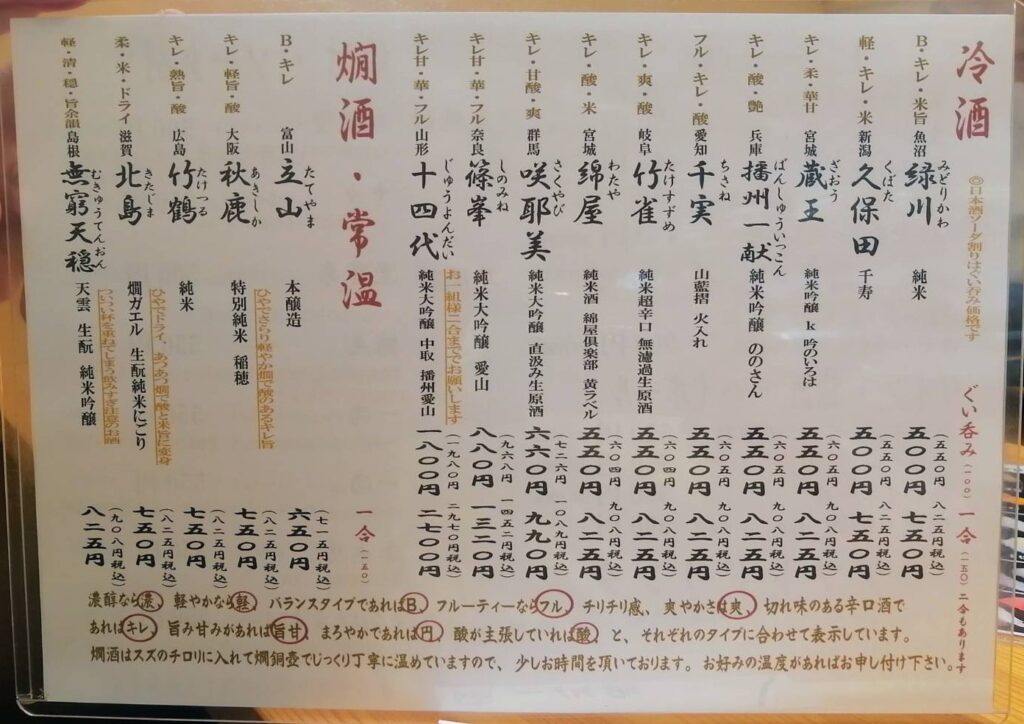 冷酒
◎日本酒ソーダ割りはぐい呑み価格です
ぐい呑み(一〇〇) 一合(一五〇) 二合もあります
B・キレ・米旨 魚沼 緑川 みどりかわ 純米 五〇〇円(五五〇円) 七五〇円(八二五円税込)
軽・キレ・米 新潟 久保田 くぼた 千寿 五〇〇円(五五〇円) 七五〇円(八二五円税込)
キレ・柔・華甘 宮城 蔵王 ざおう 純米吟醸 k 吟のいろは 五五〇円(六〇五円) 八二五円(九〇八円税込)
キレ・酸・艶 兵庫 播州一献 ばんしゅういっこん 純米吟醸 ののさん 五五〇円(六〇五円) 八二五円(九〇八円税込)
フル・キレ・酸 愛知 千実 ちさね 山藍摺 火入れ 五五〇円(六〇五円) 八二五円(九〇八円税込)
キレ・爽・酸 岐阜 竹雀 たけすずめ 純米超辛口 無濾過生原酒 五五〇円(六〇四円) 八二五円(九〇八円税込)
キレ・酸・米 宮城 綿屋 わたや 純米酒 綿屋倶楽部 黄ラベル 五五〇円(六〇四円) 八二五円(九〇八円税込)
キレ・甘酸・爽 群馬 咲耶美 さくやび 純米大吟醸 直汲み生原酒 六六〇円(七二六円) 九九〇円(一〇八九円税込)
キレ甘・華・フル 奈良 篠峯 しのみね 純米大吟醸 愛山 八八〇円(九六八円) 一三二〇円(一四五二円税込)
お一組様二合まででお願いします
キレ甘・華・フル 山形 十四代 じゅうよんだい 純米大吟醸 中取 播州愛山 一八〇〇円(一九八〇円) 二七〇〇円(二九七〇円税込)
燗酒・常温
一合(一五〇)
B・キレ 富山 立山 たてやま 本醸造 六五〇円(七一五円税込)
ひやでさらり軽やか燗で酸のあるキレ旨
キレ・軽旨・酸 大阪 秋鹿 あきしか 特別純米 稲穂 七五〇円(八二五円税込)
キレ・熟旨・酸 広島 竹鶴 たけつる 純米 七五〇円(八二五円税込)
ひやでドライ、あつあつ燗で酸と米旨に変身
柔・米・ドライ 滋賀 北島 きたじま 燗ガエル 生酛純米にごり 七五〇円(八二五円税込)
ついつい杯を重ねてしまう飲みすぎ注意のお酒
軽・清・穏・旨余韻 島根 無窮天穏 むきゅうてんおん 天雲 生酛 純米吟醸 八二五円(九〇八円税込)
濃醇なら濃、軽やかなら軽、バランスタイプであればB、フルーティーならフル、チリチリ感、爽やかさは爽、切れ味のある辛口酒で
あればキレ、旨み甘みがあれば旨甘、まろやかであれば円、酸が主張していれば酸、と、それぞれのタイプに合わせて表示しています。
燗酒はスズのチロリに入れて燗銅壺でじっくり丁寧に温めていますので、少しお時間を頂いております。お好みの温度があればお申し付け下さい。